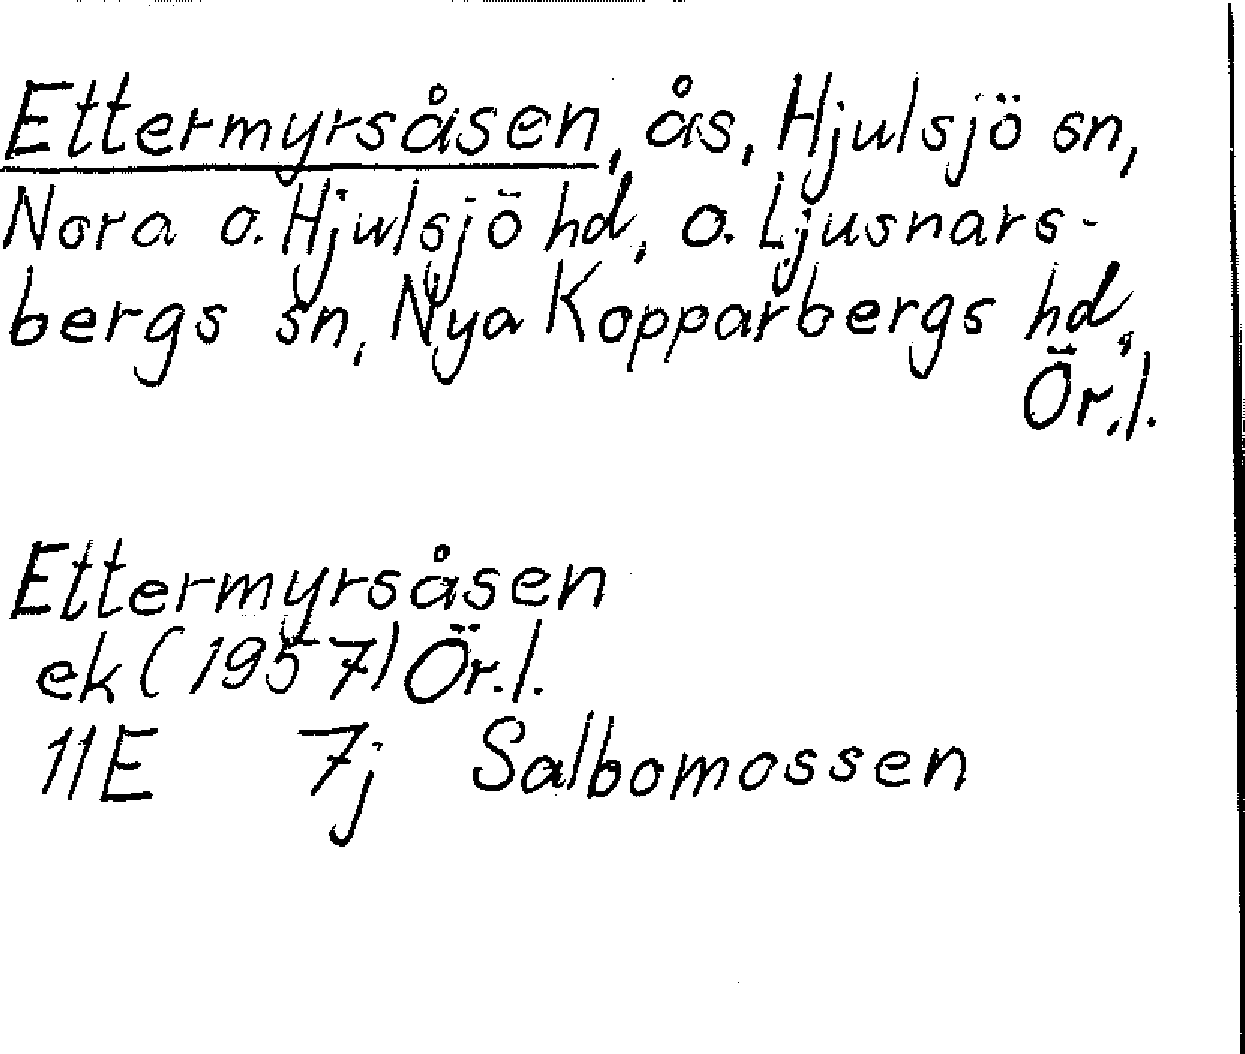 Ettermyrsåsen, ås, Hjulsjö sn,
Nora o. Hjulsjö hd, o. Ljusnars-
bergs sn, Nya Kopparbergs hd,
Ör.l.
Ettermyrsåsen
ek (1957) Ör.l.
11E 7j Salbomossen